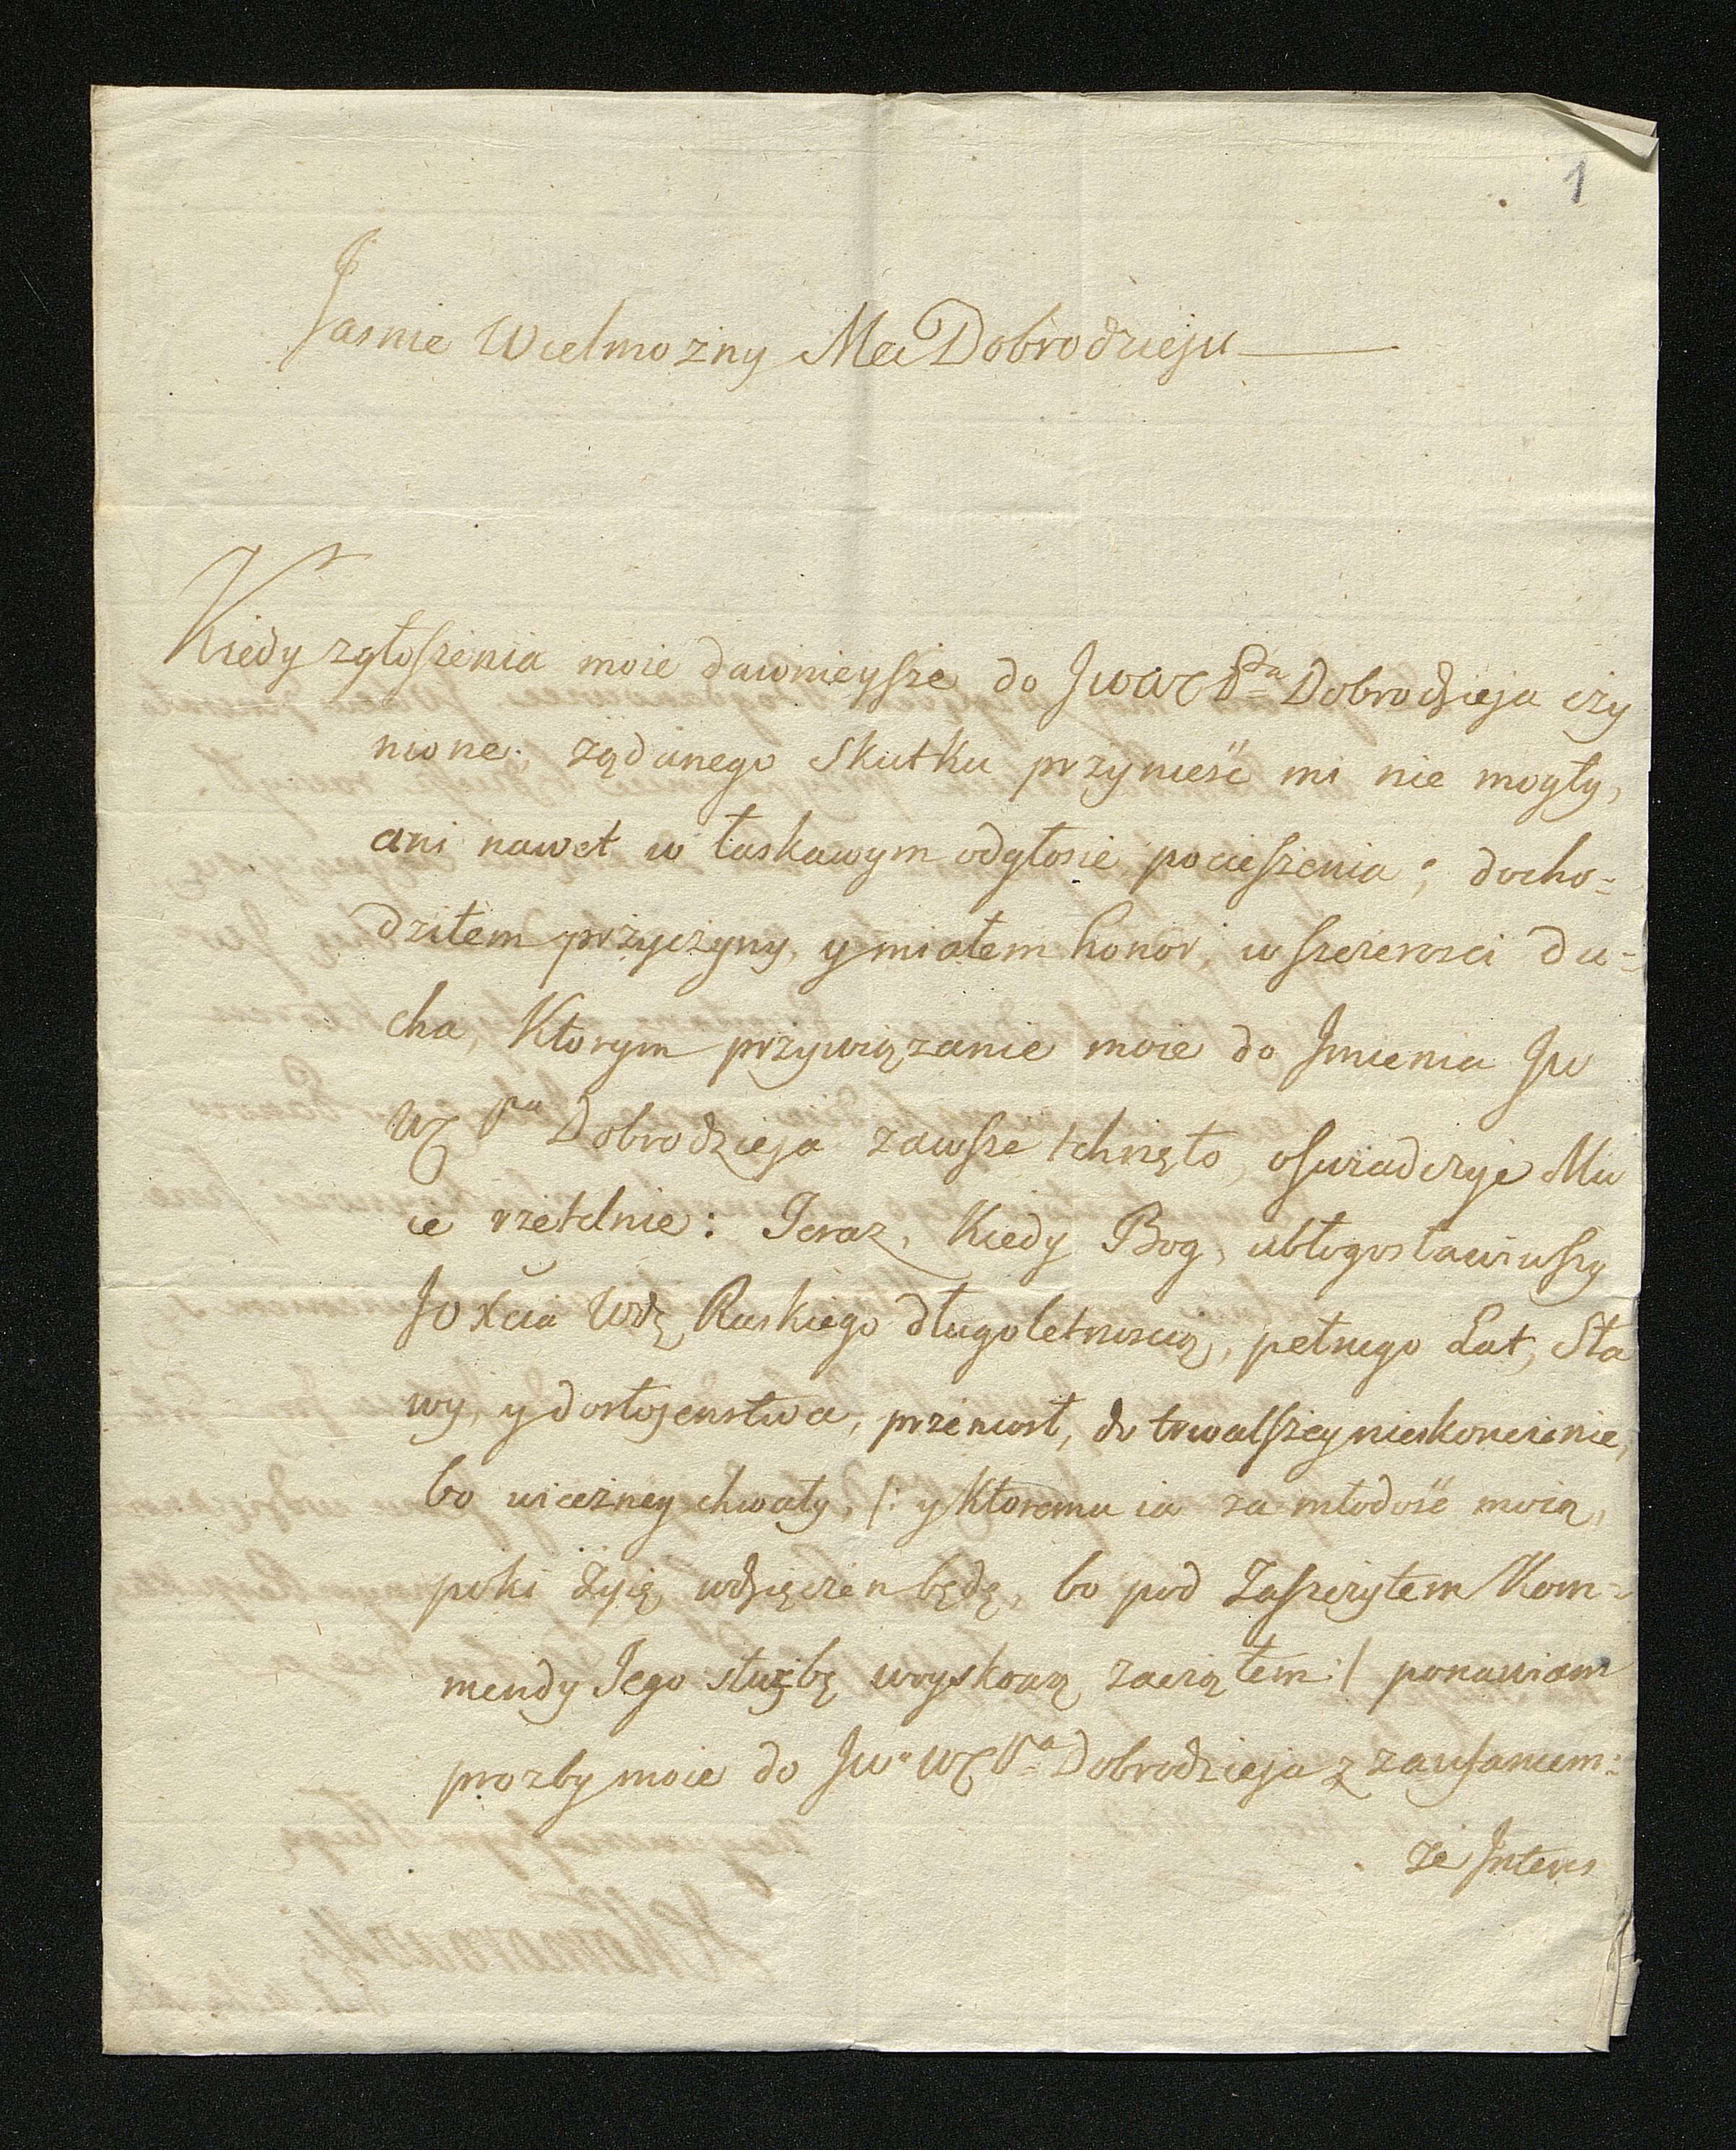 1
Jasnie Wielmozny Mci Dobrodzieju
Kiedy zgłoszenia moie dawnieysze do Jw Dobrodzieja czy
nione; ządanego skutku przynieść mi nie mogły,
ani nawet w łaskawym odgłosie pocieszenia; docho=
dziłem przyczyny, y miałem honor, w szczerosci du=
cha, Ktorym przywiązanie moie do Jmienia Jw
WC Pa Dobrodzieja zawsze tchnęło, oswiadczyć Mu
ie rzetelnie: Teraz, Kiedy Bog, ubłogosławiwszy
JO Xcia Wdę Ruskiego długoletnoscią, pełnego Lat, Sła
wy, y dostojenstwa, przeniosł, do trwalszey nieskonczenie,
bo wieczney chwały, /: y Ktoremu ia za młodość moią,
poki żyię wdzięczen będę, bo pod Zaszczytem Kom=
mendy Jego służbę woyskową zacząłem :/ ponawiam
prozby moie do Jw WC Pa Dobrodzieja z zaufaniem:
ze Jnteres